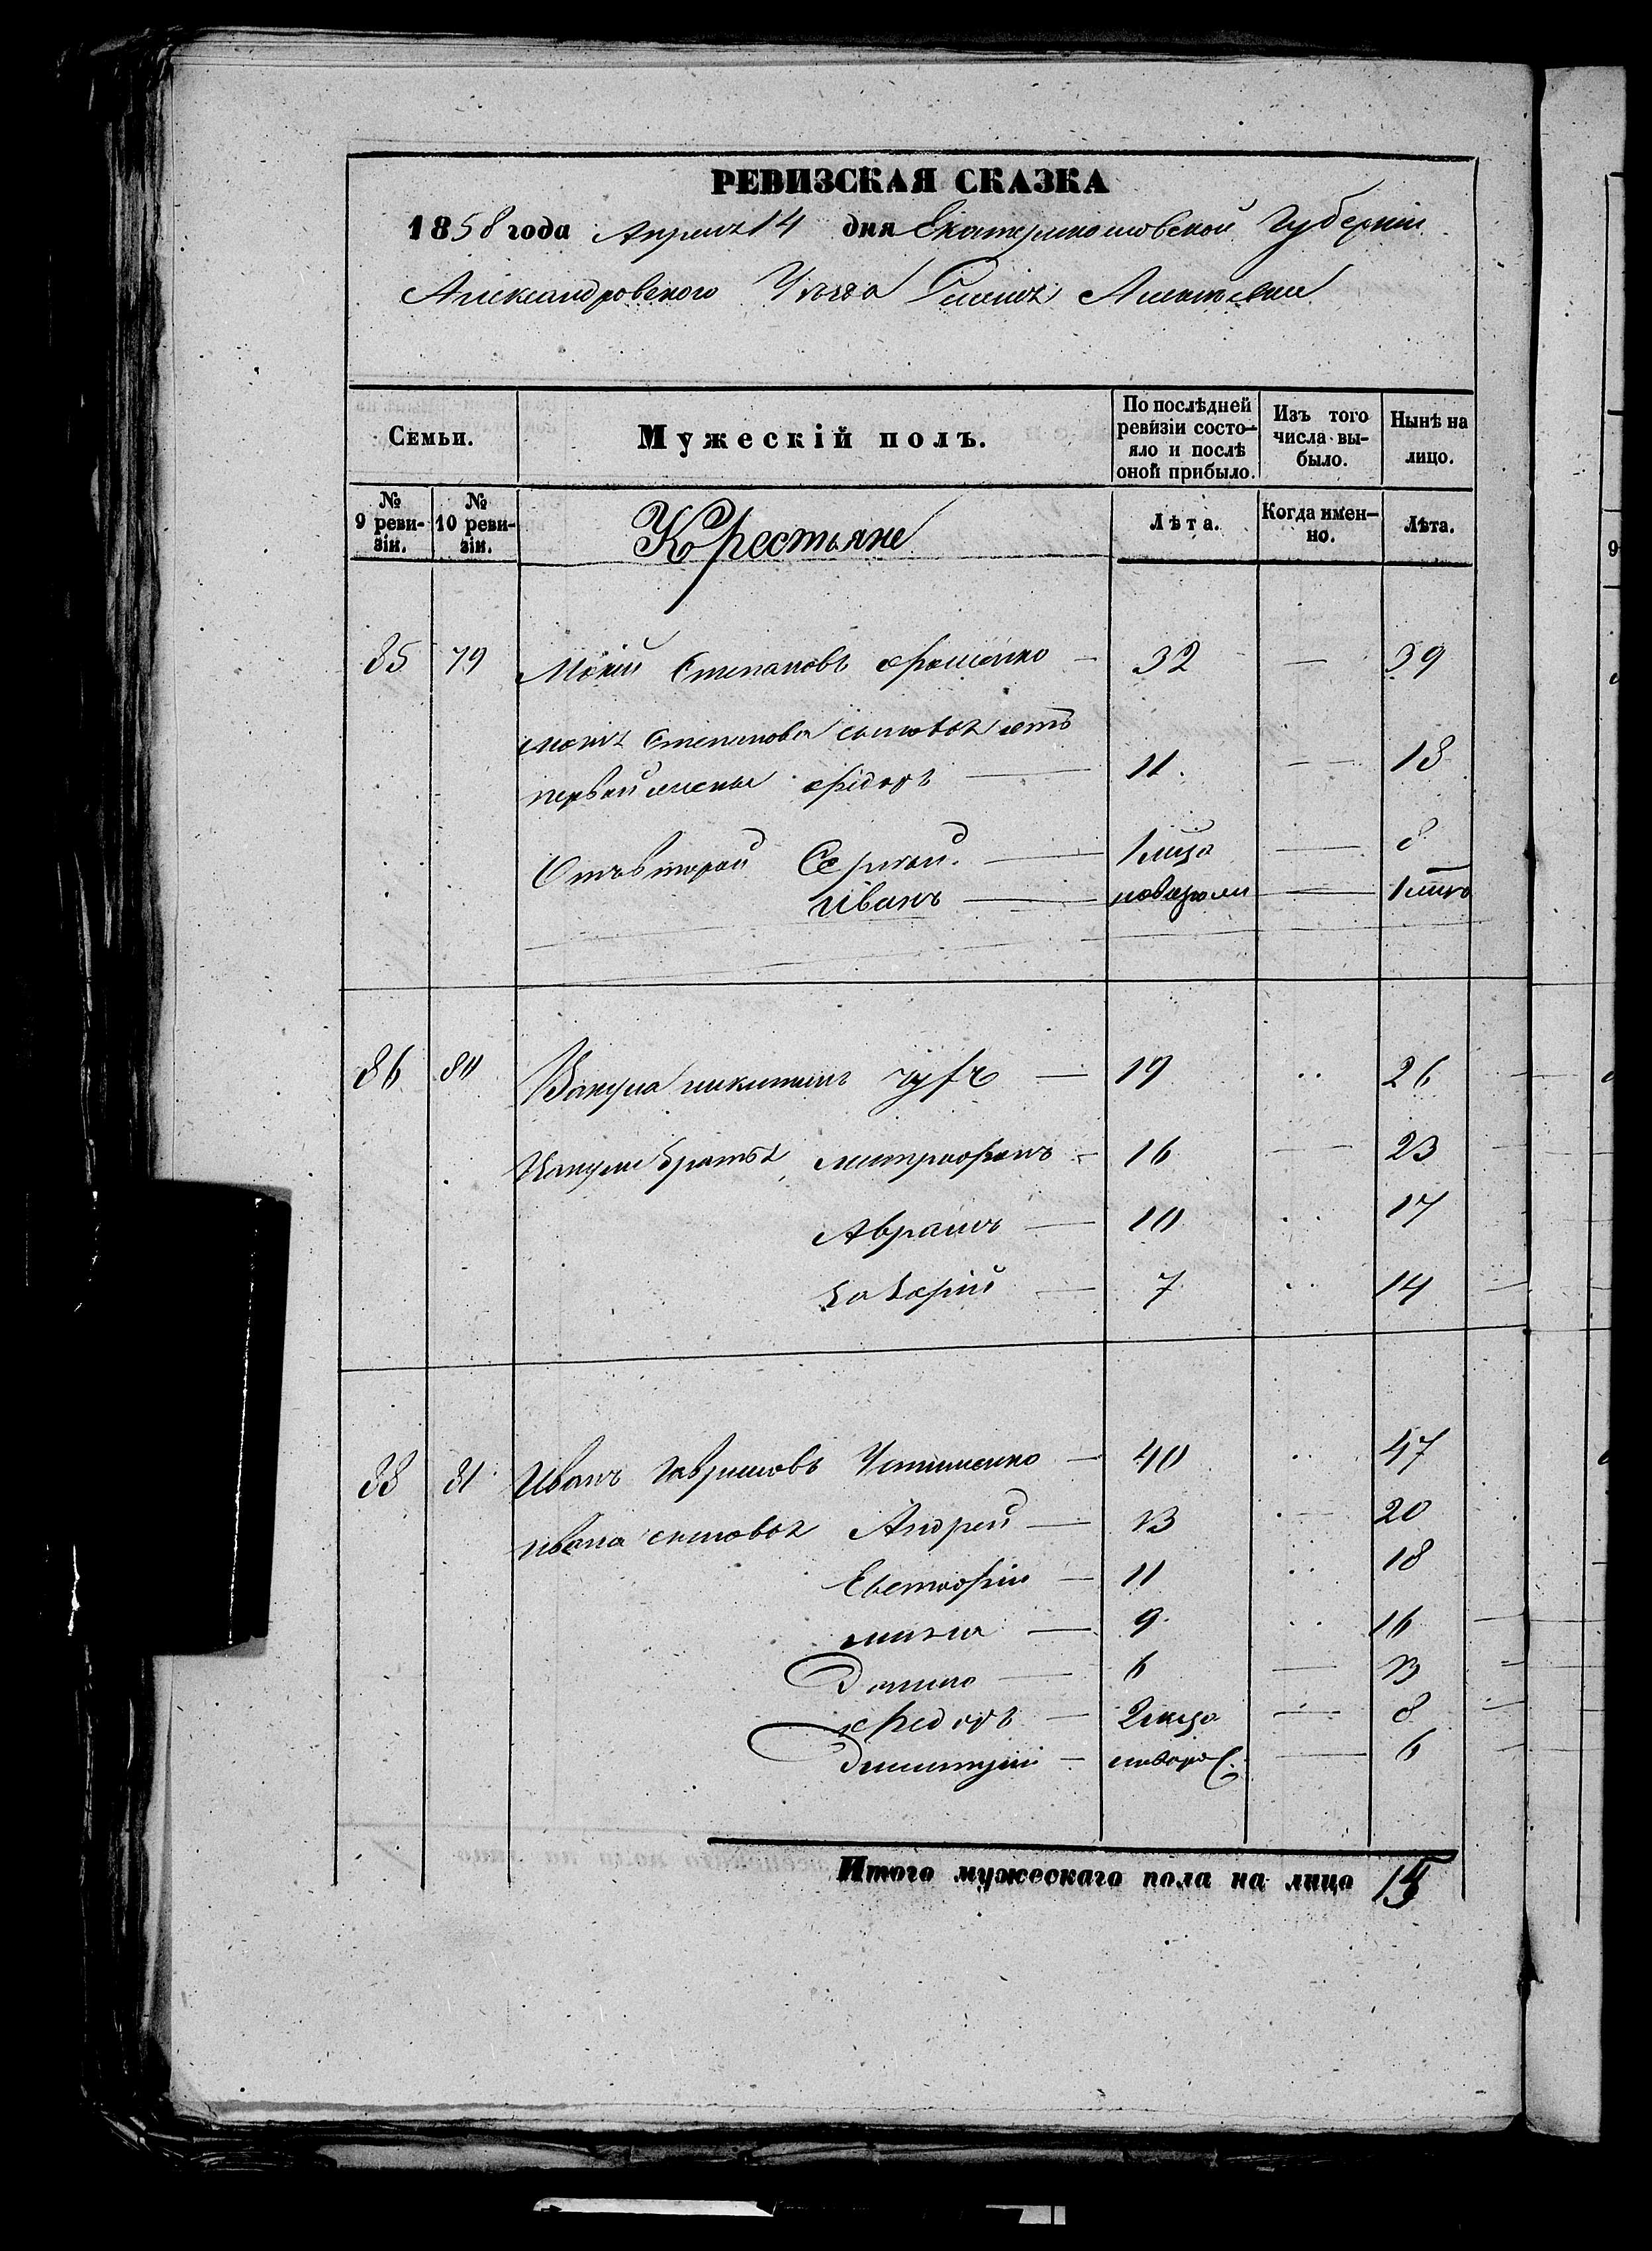 РЕВИЗСКАЯ СКАЗКА
1858 года Апреля 14 дня Екатеринославской Губерніи
Александровского Уѣзда Алексѣевки
Семьи.
Мужескій полъ.
По послѣдней ревизіи состояло и послѣ оной прибыло.
Изъ того числа выбыло.
Нынѣ на лицо.
№ 9 ревизіи.
№ 10 ревизіи.
Крестьяне
Лѣта.
Когда именно.
Лѣта.
85 79 Мокій Степановъ — 32 — 39
Мокія Степанова сыновья отъ
первой жены Ѳедоръ — 11 — 18
Отъ второй Сергѣй — 1 мца — 8
Иванъ — новорожд — 1
86 80 Вакула Никитинъ — 19 26
Вакулы братья Митрофанъ — 16 — 23
Абрамъ — 10 17
Захарій — 7 14
88 81 Иванъ Гавриловъ Устименко — 40 47
Ивана сыновья Андрей — 13 20
Евстафій — 11 18
— 9 16
Данило — 6 — 13
Федоръ — 2 мца — 8
Дмитрій — новорож. — 6
Итого мужескаго пола на лицо 15